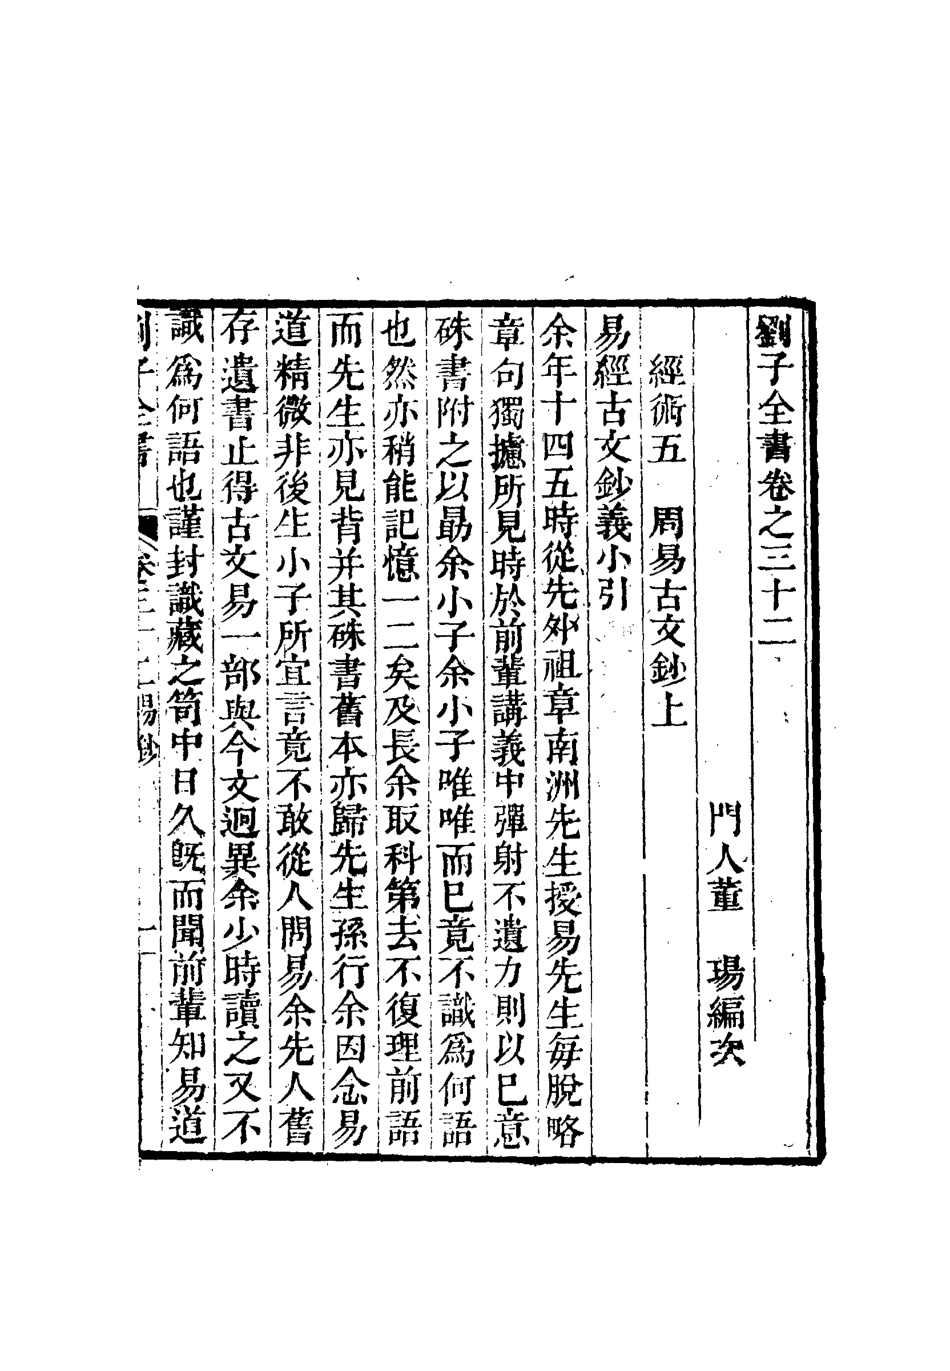 劉子全書卷之三十二
門人董　瑒編次
經術五　周易古文鈔上
易經古文鈔義小引
余年十四五時從先外祖章南洲先生授易先生每脫略
章句獨攄所見時於前輩講義中彈射不遺力則以己意
硃書附之以勗余小子余小子唯唯而已竟不識爲何語
也然亦稍能記憶一二矣及長余取科第去不復理前語
而先生亦見背并其硃書舊本亦歸先生孫行余因念易
道精微非後生小子所宜言竟不敢從人問易余先人舊
存遺書止得古文易一部與今文迥異余少時讀之又不
識爲何語也謹封識藏之笥中日久旣而聞前輩知易道
劉子全書　卷三十二易鈔　一